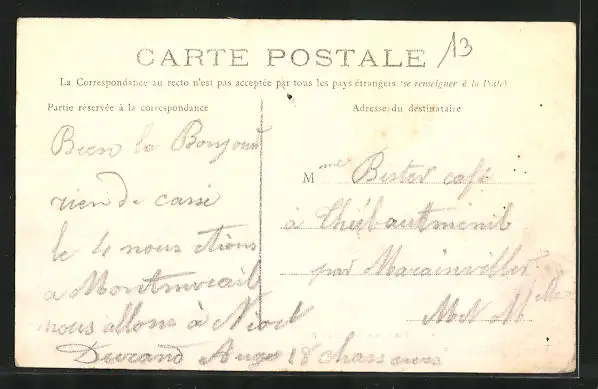 CARTE POSTALE
13
La Correspondance au recto n'est pas acceptée par tous les pays étrangers (se renseigner à la Poste)
Partie réservée à la correspondance
Adresse du destinataire
Bien le Bonjour
rien de cassé
le 4 nous étions
a Montmirail
nous allons à Niort
Durand 18 chasseurs
M me Bister café
à Thiébauménil
par Marainviller
M et Mlle